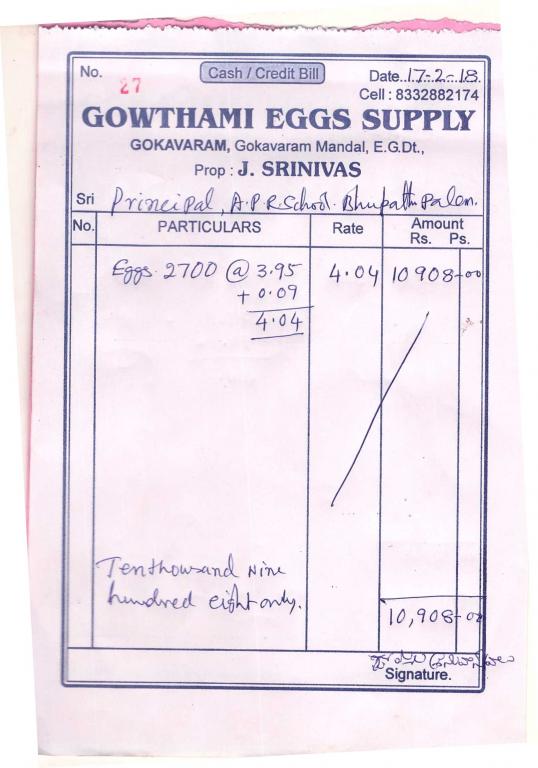 No. 27
Cash / Credit Bill
Date. 17-2-18.
Cell : 8332882174
GOWTHAMI EGGS SUPPLY
GOKAVARAM, Gokavaram Mandal, E.G.Dt.,
Prop : J. SRINIVAS
Sri Principal, A.P.R.School. Bhupathi Palem.
No. PARTICULARS Rate Amount
Rs. Ps.
Eggs. 2700 @ 3.95 4.04 10908-00
+ 0.09
4.04
Ten thousand Nine
hundred eight only.
10,908-00
Signature.